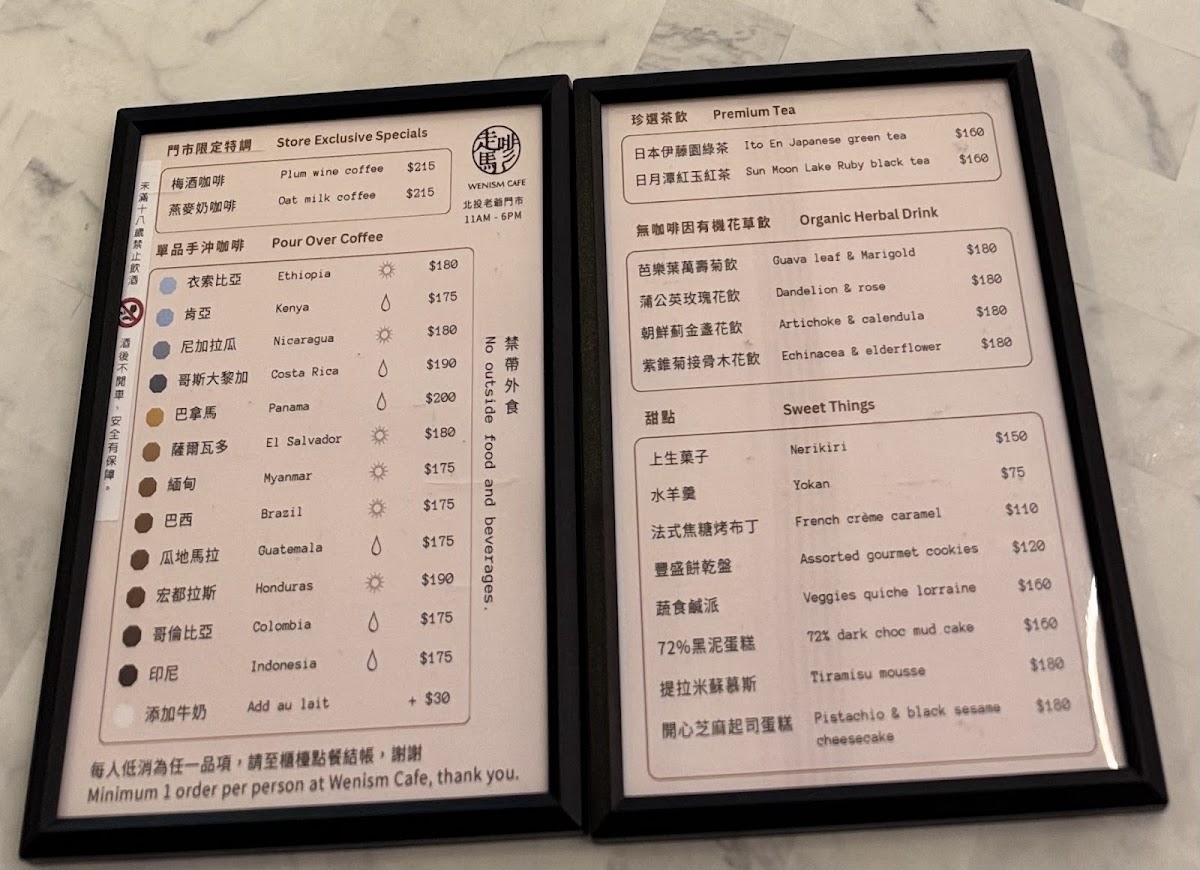 門市限定特調 Store Exclusive Specials
梅酒咖啡 Plum wine coffee $215
燕麥奶咖啡 Oat milk coffee $215
走馬啡彡
WENISM CAFE
北投老爺門市
11AM - 6PM
未滿十八歲禁止飲酒
酒後不開車、安全有保障。
單品手沖咖啡 Pour Over Coffee
衣索比亞 Ethiopia $180
肯亞 Kenya $175
尼加拉瓜 Nicaragua $180
哥斯大黎加 Costa Rica $190
巴拿馬 Panama $200
薩爾瓦多 El Salvador $180
緬甸 Myanmar $175
巴西 Brazil $175
瓜地馬拉 Guatemala $175
宏都拉斯 Honduras $190
哥倫比亞 Colombia $175
印尼 Indonesia $175
添加牛奶 Add au lait + $30
禁帶外食
No outside food and beverages.
每人低消為任一品項，請至櫃檯點餐結帳，謝謝
Minimum 1 order per person at Wenism Cafe, thank you.
珍選茶飲 Premium Tea
日本伊藤園綠茶 Ito En Japanese green tea $160
日月潭紅玉紅茶 Sun Moon Lake Ruby black tea $160
無咖啡因有機花草飲 Organic Herbal Drink
芭樂葉萬壽菊飲 Guava leaf & Marigold $180
蒲公英玫瑰花飲 Dandelion & rose $180
朝鮮薊金盞花飲 Artichoke & calendula $180
紫錐菊接骨木花飲 Echinacea & elderflower $180
甜點 Sweet Things
上生菓子 Nerikiri $150
水羊羹 Yokan $75
法式焦糖烤布丁 French crème caramel $110
豐盛餅乾盤 Assorted gourmet cookies $120
蔬食鹹派 Veggies quiche lorraine $160
72%黑泥蛋糕 72% dark choc mud cake $160
提拉米蘇慕斯 Tiramisu mousse $180
開心芝麻起司蛋糕 Pistachio & black sesame $180
cheesecake